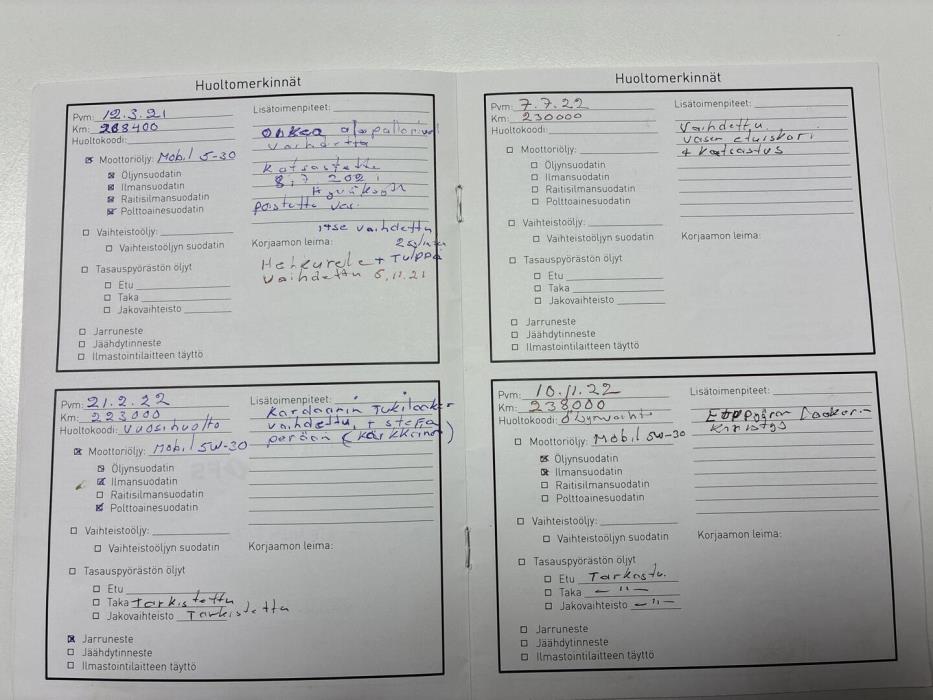 Huoltomerkinnät
Pvm: 12.3.21
Km: 208400
Huoltokoodi:
Moottoriöljy: Mobil 5-30
Öljynsuodatin
Ilmansuodatin
Raitisilmansuodatin
Polttoainesuodatin
Vaihteistoöljy:
Vaihteistoöljyn suodatin
Tasauspyörästön öljyt
Etu
Taka
Jakovaihteisto
Jarruneste
Jäähdytinneste
Ilmastointilaitteen täyttö
Lisätoimenpiteet:
oikea alapallonivel
vaihdettu
Katsastettu
8.7 2021
Hyväksytty
itse vaihdettu
Korjaamon leima:
+ Tulppa
vaihdettu 5.11.21
Pvm: 21.2.22
Km: 223000
Huoltokoodi: Vuosihuolto
Moottoriöljy: Mobil 5W-30
Öljynsuodatin
Ilmansuodatin
Raitisilmansuodatin
Polttoainesuodatin
Vaihteistoöljy:
Vaihteistoöljyn suodatin
Tasauspyörästön öljyt
Etu
Taka Tarkistettu
Jakovaihteisto Tarkistettu
Jarruneste
Jäähdytinneste
Ilmastointilaitteen täyttö
Lisätoimenpiteet:
Kardaanin Tukilaakeri
vaihdettu, +
perään (Kärkkäinen)
Korjaamon leima:
Huoltomerkinnät
Pvm: 7.7.22
Km: 230000
Huoltokoodi:
Moottoriöljy:
Öljynsuodatin
Ilmansuodatin
Raitisilmansuodatin
Polttoainesuodatin
Vaihteistoöljy:
Vaihteistoöljyn suodatin
Tasauspyörästön öljyt
Etu
Taka
Jakovaihteisto
Jarruneste
Jäähdytinneste
Ilmastointilaitteen täyttö
Lisätoimenpiteet:
Vaihdettu
vasen etuiskari
+ Katsastus
Korjaamon leima:
Pvm: 10.11.22
Km: 238000
Huoltokoodi: Öljynvaihto
Moottoriöljy: Mobil 5W-30
Öljynsuodatin
Ilmansuodatin
Raitisilmansuodatin
Polttoainesuodatin
Vaihteistoöljy:
Vaihteistoöljyn suodatin
Tasauspyörästön öljyt
Etu Tarkastu.
Taka —"—
Jakovaihteisto —"—
Jarruneste
Jäähdytinneste
Ilmastointilaitteen täyttö
Lisätoimenpiteet:
Etupyörän Laakerin
Kiristys
Korjaamon leima: